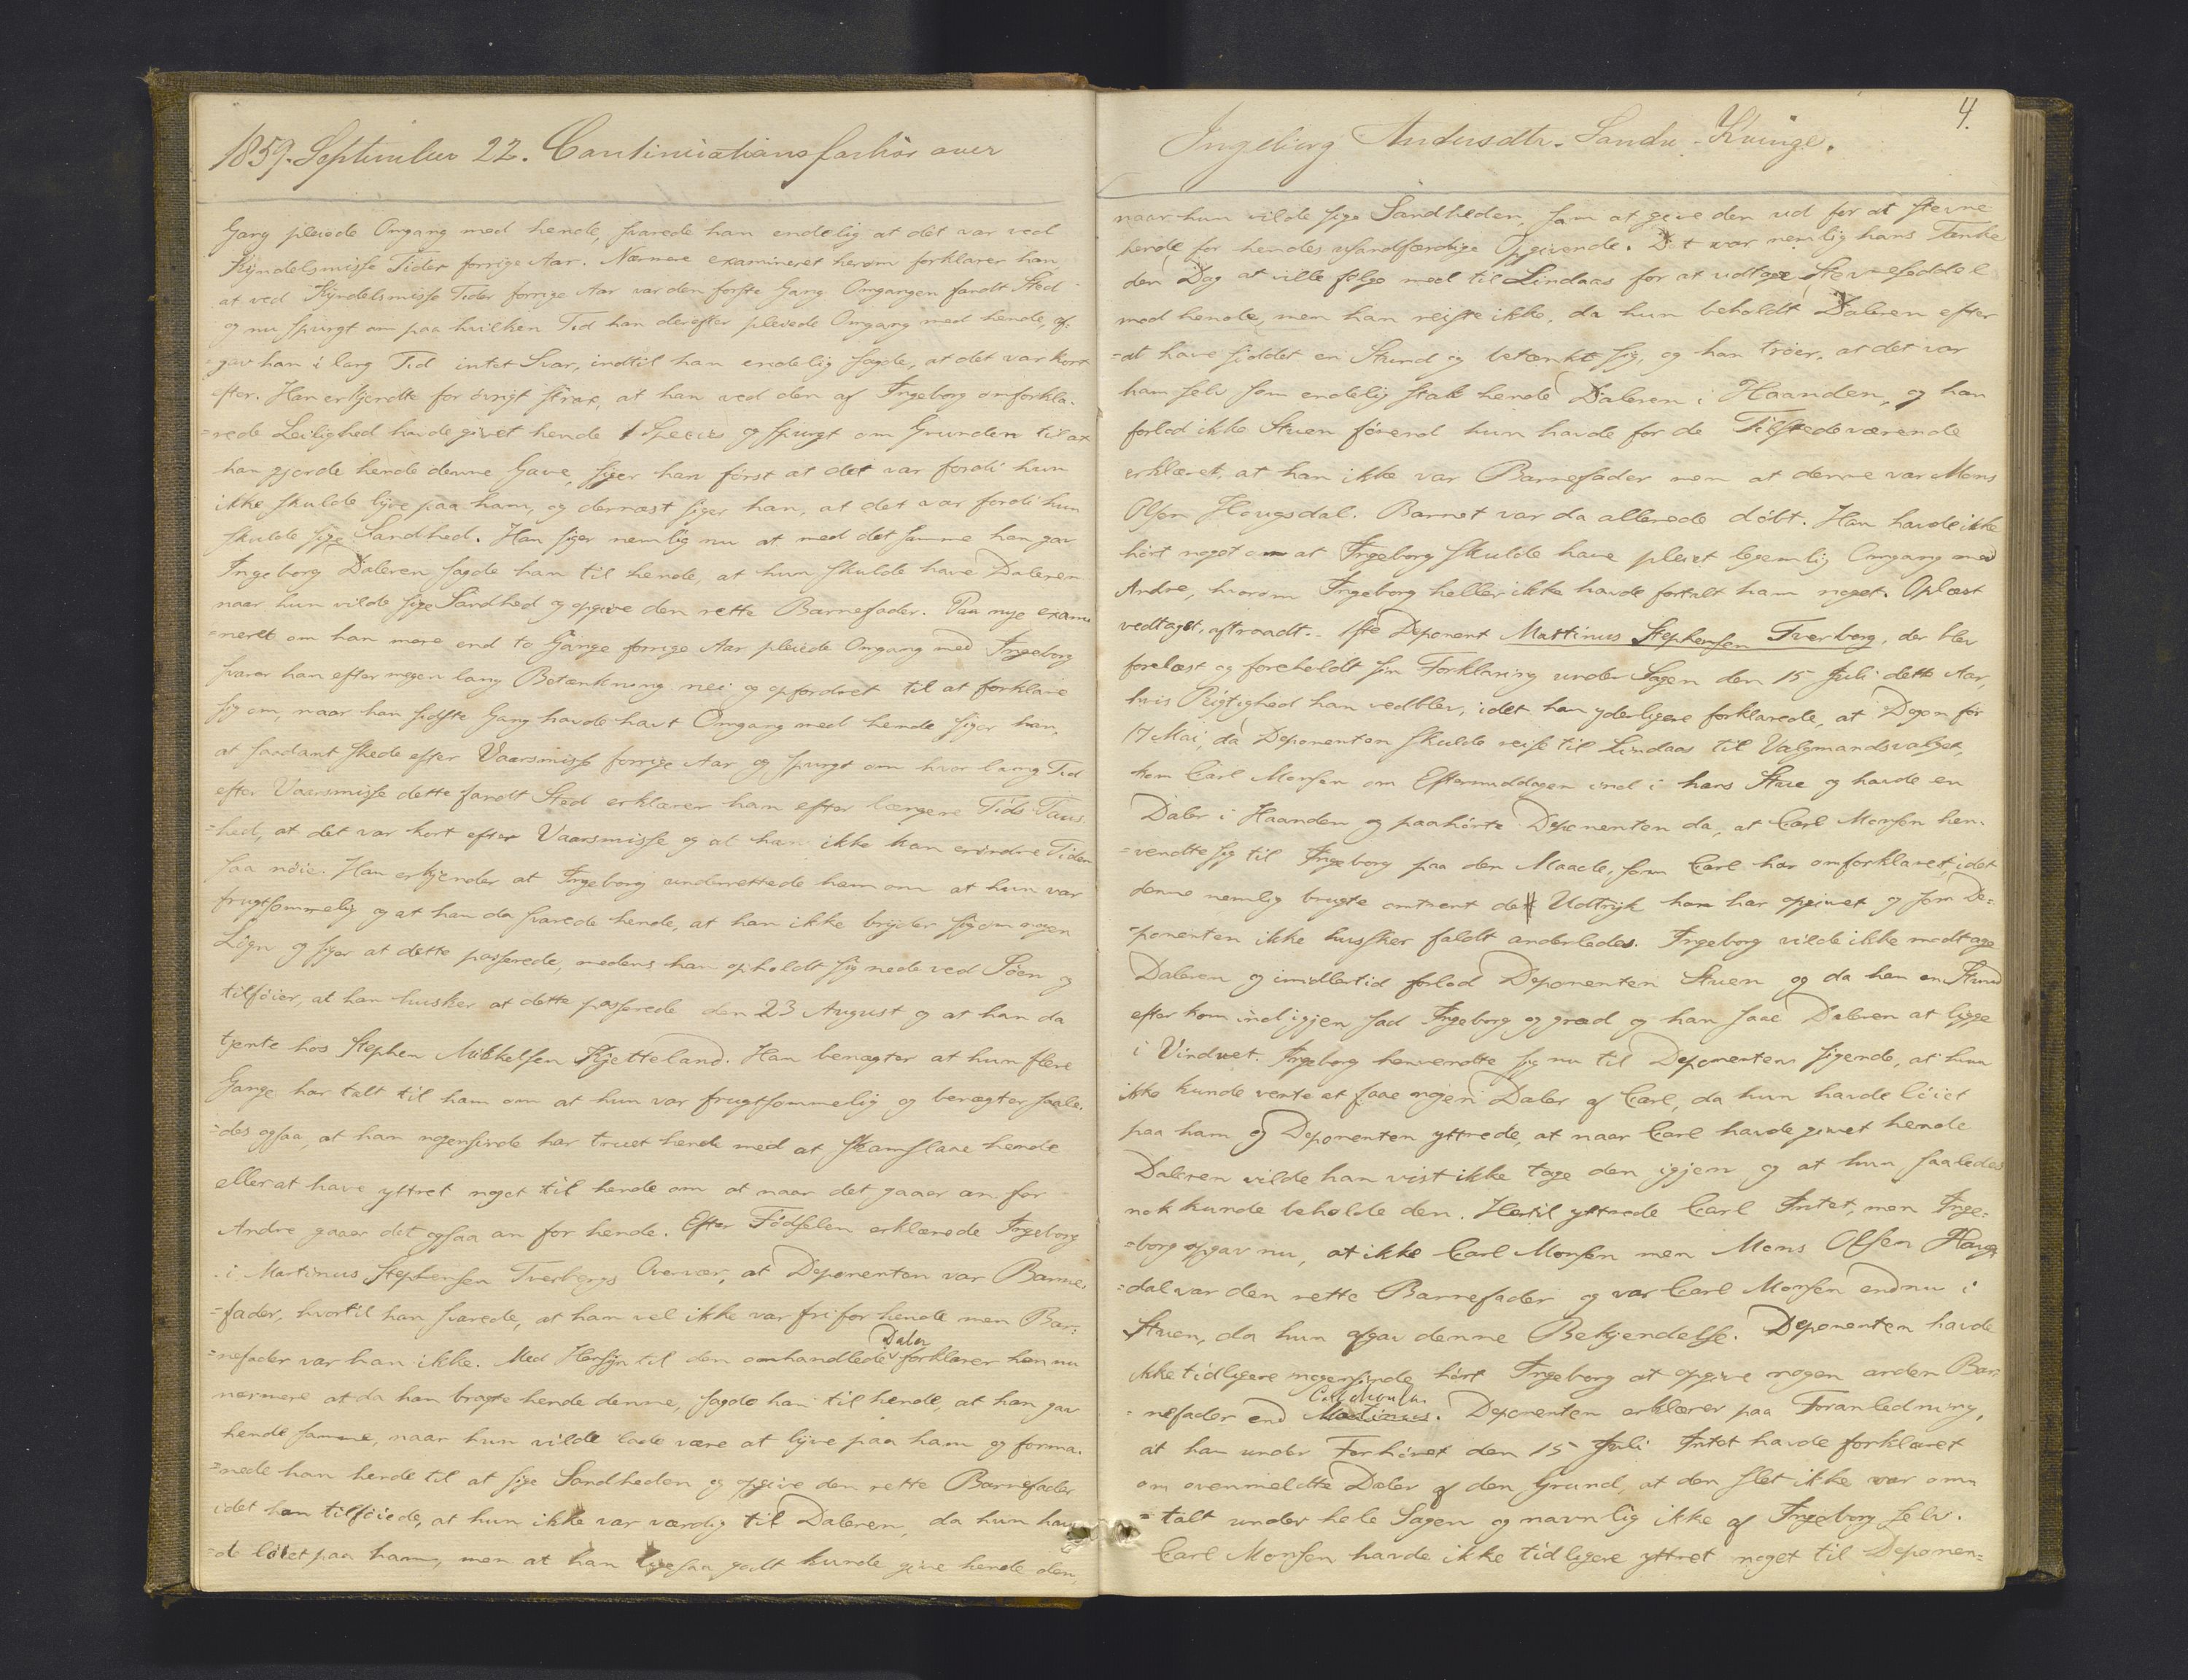 1859. September 22. Continuationsforhör over
Gang pleiede Omgang med hende, svarede han endelig at det var ved
Kyndelsmisse Tider forrige Aar. Nærmere examineret herom forklarer han
at ved Kyndelsmisse Tider forrige Aar var den første Gang Omgangen fandt Sted
og nu spurgt om paa hvilken Tid han derefter pleiede Omgang med hende, af-
=gav han i lang Tid intet Svar, indtil han endelig sagde, at det var kort
efter. Han erkjendte for övrigt strax, at han ved den af Ingeborg omforkla-
=rede Leilighed havde givet hende 1 Species og spurgt om Grunden til at
han gjorde hende denne Gave, siger han först at det var fordi hun
ikke skulde lyve paa ham, og dernæst siger han, at det var fordi hun
skulde sige Sandhed. Han siger nemlig nu at med det samme han gav
Ingeborg Daleren sagde han til hende, at hun skulde have Daleren
naar hun vilde sige Sandhed og opgive den rette Barnefader. Paa nye exami
=neret om han mere end to Gange forrige Aar pleiede Omgang med Ingeborg
svarer han efter megen lang Betænkning nei og opfordret til at forklare
sig om, naar han sidste Gang havde havt Omgang med hende siger han,
at saadant skede efter Vaarmisse forrige Aar og spurgt om hvor lang Tid
efter Vaarsmisse dette fandt Sted erklærer han efter længere Tids Taus-
=hed, at det var kort efter Vaarsmisse og at han ikke kan erindre Tiden
saa nöie. Han erkjender at Ingeborg underrettede ham om at hun var
frugtsommelig og at han da svarede hende, at han ikke bryder sig om nogen
Lögn og siger at dette passerede, medens han opholdt sig nede ved Söen og
tilföier, at han husker at dette passerede den 23 August og at han da
tjente hos Stephen Mikkelsen Kjetteland. Han benægter at hun flere
Gange har talt til ham om at hun var frugtsommelig og benægter saale-
=des ogsaa, at han nogensinde har truet hende med at skamslaae hende
eller at have yttret noget til hende om at naar det gaaer an for
Andre gaaer det ogsaa an for hende. Efter Födselen erklærede Ingeborg
i Martinus Stephensen Tverbergs Overvær, at Deponenten var Barne-
=fader, hvortil han svarede, at han vel ikke var fri for hende men Bar-
=nefader var han ikke. Med Hensyn til den omhandlede Daler forklarer han nu
nærmere at da han bragte hende denne, sagde han til hende, at han gav
hende samme, naar hun vilde lade være at lyve paa ham og forma-
=nede han hende til at sige Sandheden og opgive den rette Barnefader
idet han tilföiede, at hun ikke var værdig til Daleren, da hun hav
=de löiet paa ham, men at han ligesaa godt kunde give hende den,
4.
Ingeborg Andersdtr. Sandn. Kvinge.
naar hun vilde sige Sandheden som at give den ud for at stevne
hende for hendes usandfærdige Opgivende. Det var nemlig hans Tanke
den Dag at ville fölge med til Lindaas for at udtage Stevneseddel
mod hende, men han reiste ikke, da hun beholdt Daleren efter
=at have siddet en Stund og betænkt sig, og han tröer, at det var
ham selv som endelig stak hende Daleren i Haanden, og han
forlod ikke Stuen förend hun havde for de Tilstedeværende
erklæret, at han ikke var Barnefader men at denne var Mons
Olsen Hougsdal. Barnet var da allerede döbt. Han havde ikke
hört noget om at Ingeborg skulde have pleiet legemlig Omgang med
Andre, hvorom Ingeborg heller ikke havde fortalt ham noget. Oplæst
vedtaget, aftraadt. 1ste Deponent Martinus Stephensen Tverberg, der blev
forelæst og foreholdt sin Forklaring under Sagen den 15 Juli dette Aar,
hvis Rigtighed han vedblev, idet han yderligere forklarede, at Dagen för
17 Mai, da Deponenten skulde reise til Lindaas til Valgmandsvalget,
kom Carl Monsen om Eftermiddagen ind i hans Stue og havde en
Daler i Haanden og paahörte Deponenten da, at Carl Monsen hen-
=vendte sig til Ingeborg paa den Maade, som Carl har omforklaret, idet
denne nemlig brugte omtrent det Udtryk han har opgivet og som De-
=ponenten ikke husker faldt anderledes. Ingeborg vilde ikke modtage
Daleren og imidlertid forlod Deponenten Stuen og da han en Stund
efter kom ind igjen sad Ingeborg og græd og han saae Daleren at ligge
i Vinduet. Ingeborg henvendte sig nu til Deponenten sigende, at hun
ikke kunde vente at faae nogen Daler af Carl, da hun havde löiet
paa ham og Deponenten yttrede, at naar Carl havde givet hende
Daleren vilde han vist ikke tage den igjen og at hun saaledes
nok kunde beholde den. Hertil yttrede Carl Intet, men Inge-
=borg opgav nu, at ikke Carl Monsen men Mons Olsen Hougs
=dal var den rette Barnefader og var Carl Monsen endnu i
Stuen, da hun afgav denne Bekjendelse. Deponenten havde
ikke tidligere nogensinde hört Ingeborg at opgive nogen anden Bar-
=nefader end Martinus. Deponenten erklærer paa Foranledning,
at han under Forhöret den 15 Juli Intet havde forklaret
om ovenmeldte Daler af den Grund, at den slet ikke var om-
=talt under hele Sagen og navnlig ikke af Ingeborg selv.
Carl Monsen havde ikke tidligere yttret noget til Deponen-